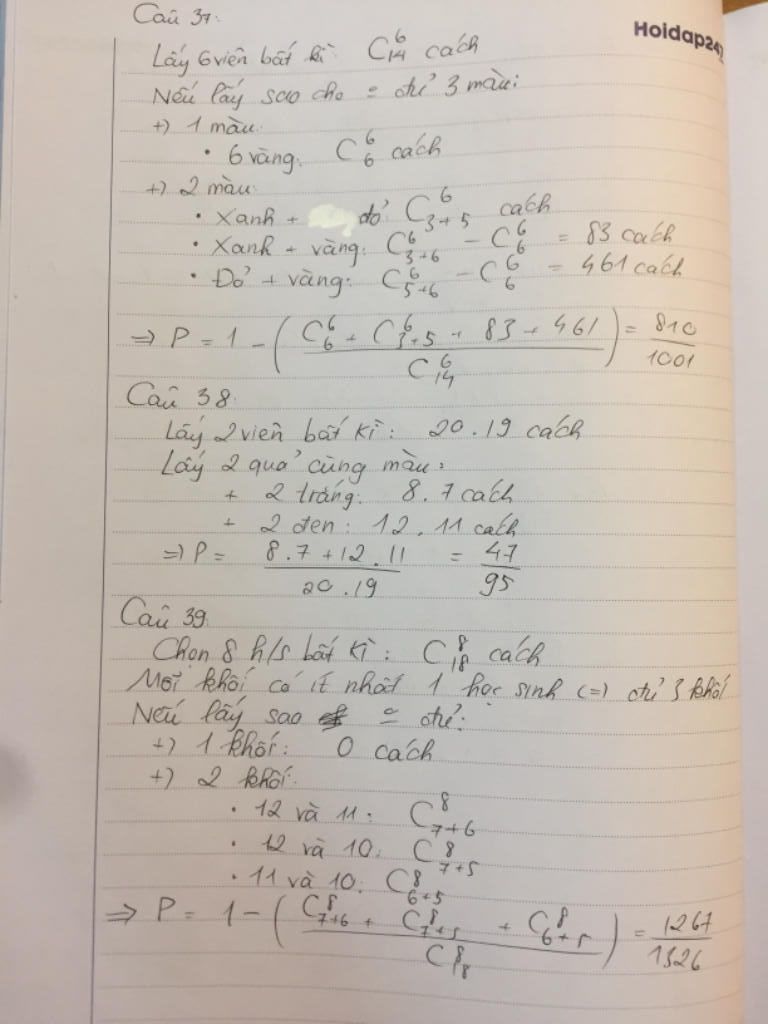 Câu 37:
Hoidap247
Lấy 6 viên bất kì: C₁₄⁶ cách
Nếu lấy sao cho = đủ 3 màu:
+) 1 màu:
• 6 vàng: C₆⁶ cách
+) 2 màu:
• Xanh + đỏ: C₃₊₅⁶ cách
• Xanh + vàng: C₃₊₆⁶ - C₆⁶ = 83 cách
• Đỏ + vàng: C₅₊₆⁶ - C₆⁶ = 461 cách
=> P = 1 - ( (C₆⁶ + C₃₊₅⁶ + 83 + 461) / C₁₄⁶ ) = 810/1001
Câu 38:
Lấy 2 viên bất kì: 20.19 cách
Lấy 2 quả cùng màu:
+ 2 trắng: 8.7 cách
+ 2 đen: 12.11 cách
=> P = (8.7 + 12.11) / 20.19 = 47/95
Câu 39
Chọn 8 h/s bất kì: C₁₈⁸ cách
Mỗi khối có ít nhất 1 học sinh (=) đủ 3 khối
Nếu lấy sao = đủ:
+) 1 khối: 0 cách
+) 2 khối:
• 12 và 11: C₇₊₆⁸
• 12 và 10: C₇₊₅⁸
• 11 và 10: C₆₊₅⁸
=> P = 1 - ( (C₇₊₆⁸ + C₇₊₅⁸ + C₆₊₅⁸) / C₁₈⁸ ) = 1267/1326